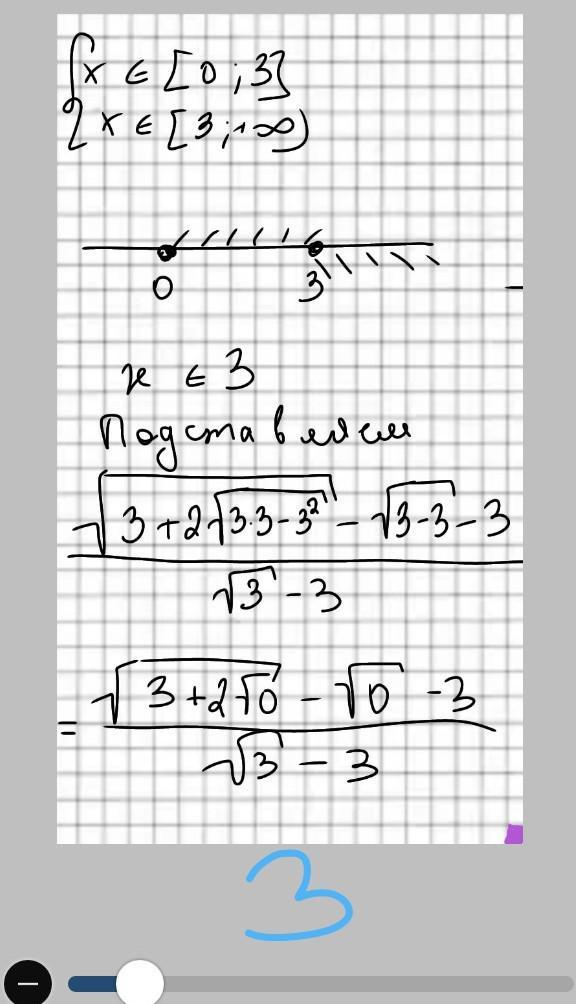 { x ∈ [0 ; 3]
x ∈ [3 ; +∞)
0 3
x ∈ 3
Подставляем
√(3 + 2√(3·3 - 3²)) - √(3-3) - 3
√3 - 3
= √(3 + 2√0) - √0 - 3
√3 - 3
3